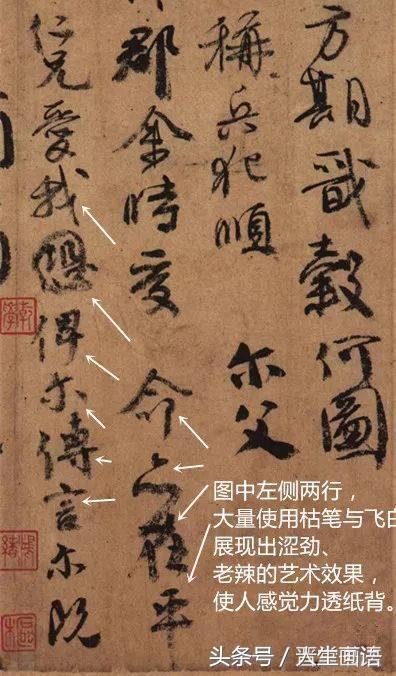 方期戩穀何圖
稱兵犯順 尔父
郡余時受命亦在平
仁兄愛我俾尔傳言尔既
图中左侧两行，
大量使用枯笔与飞白
展现出涩劲、
老辣的艺术效果，
使人感觉力透纸背。
头条号 / 画语